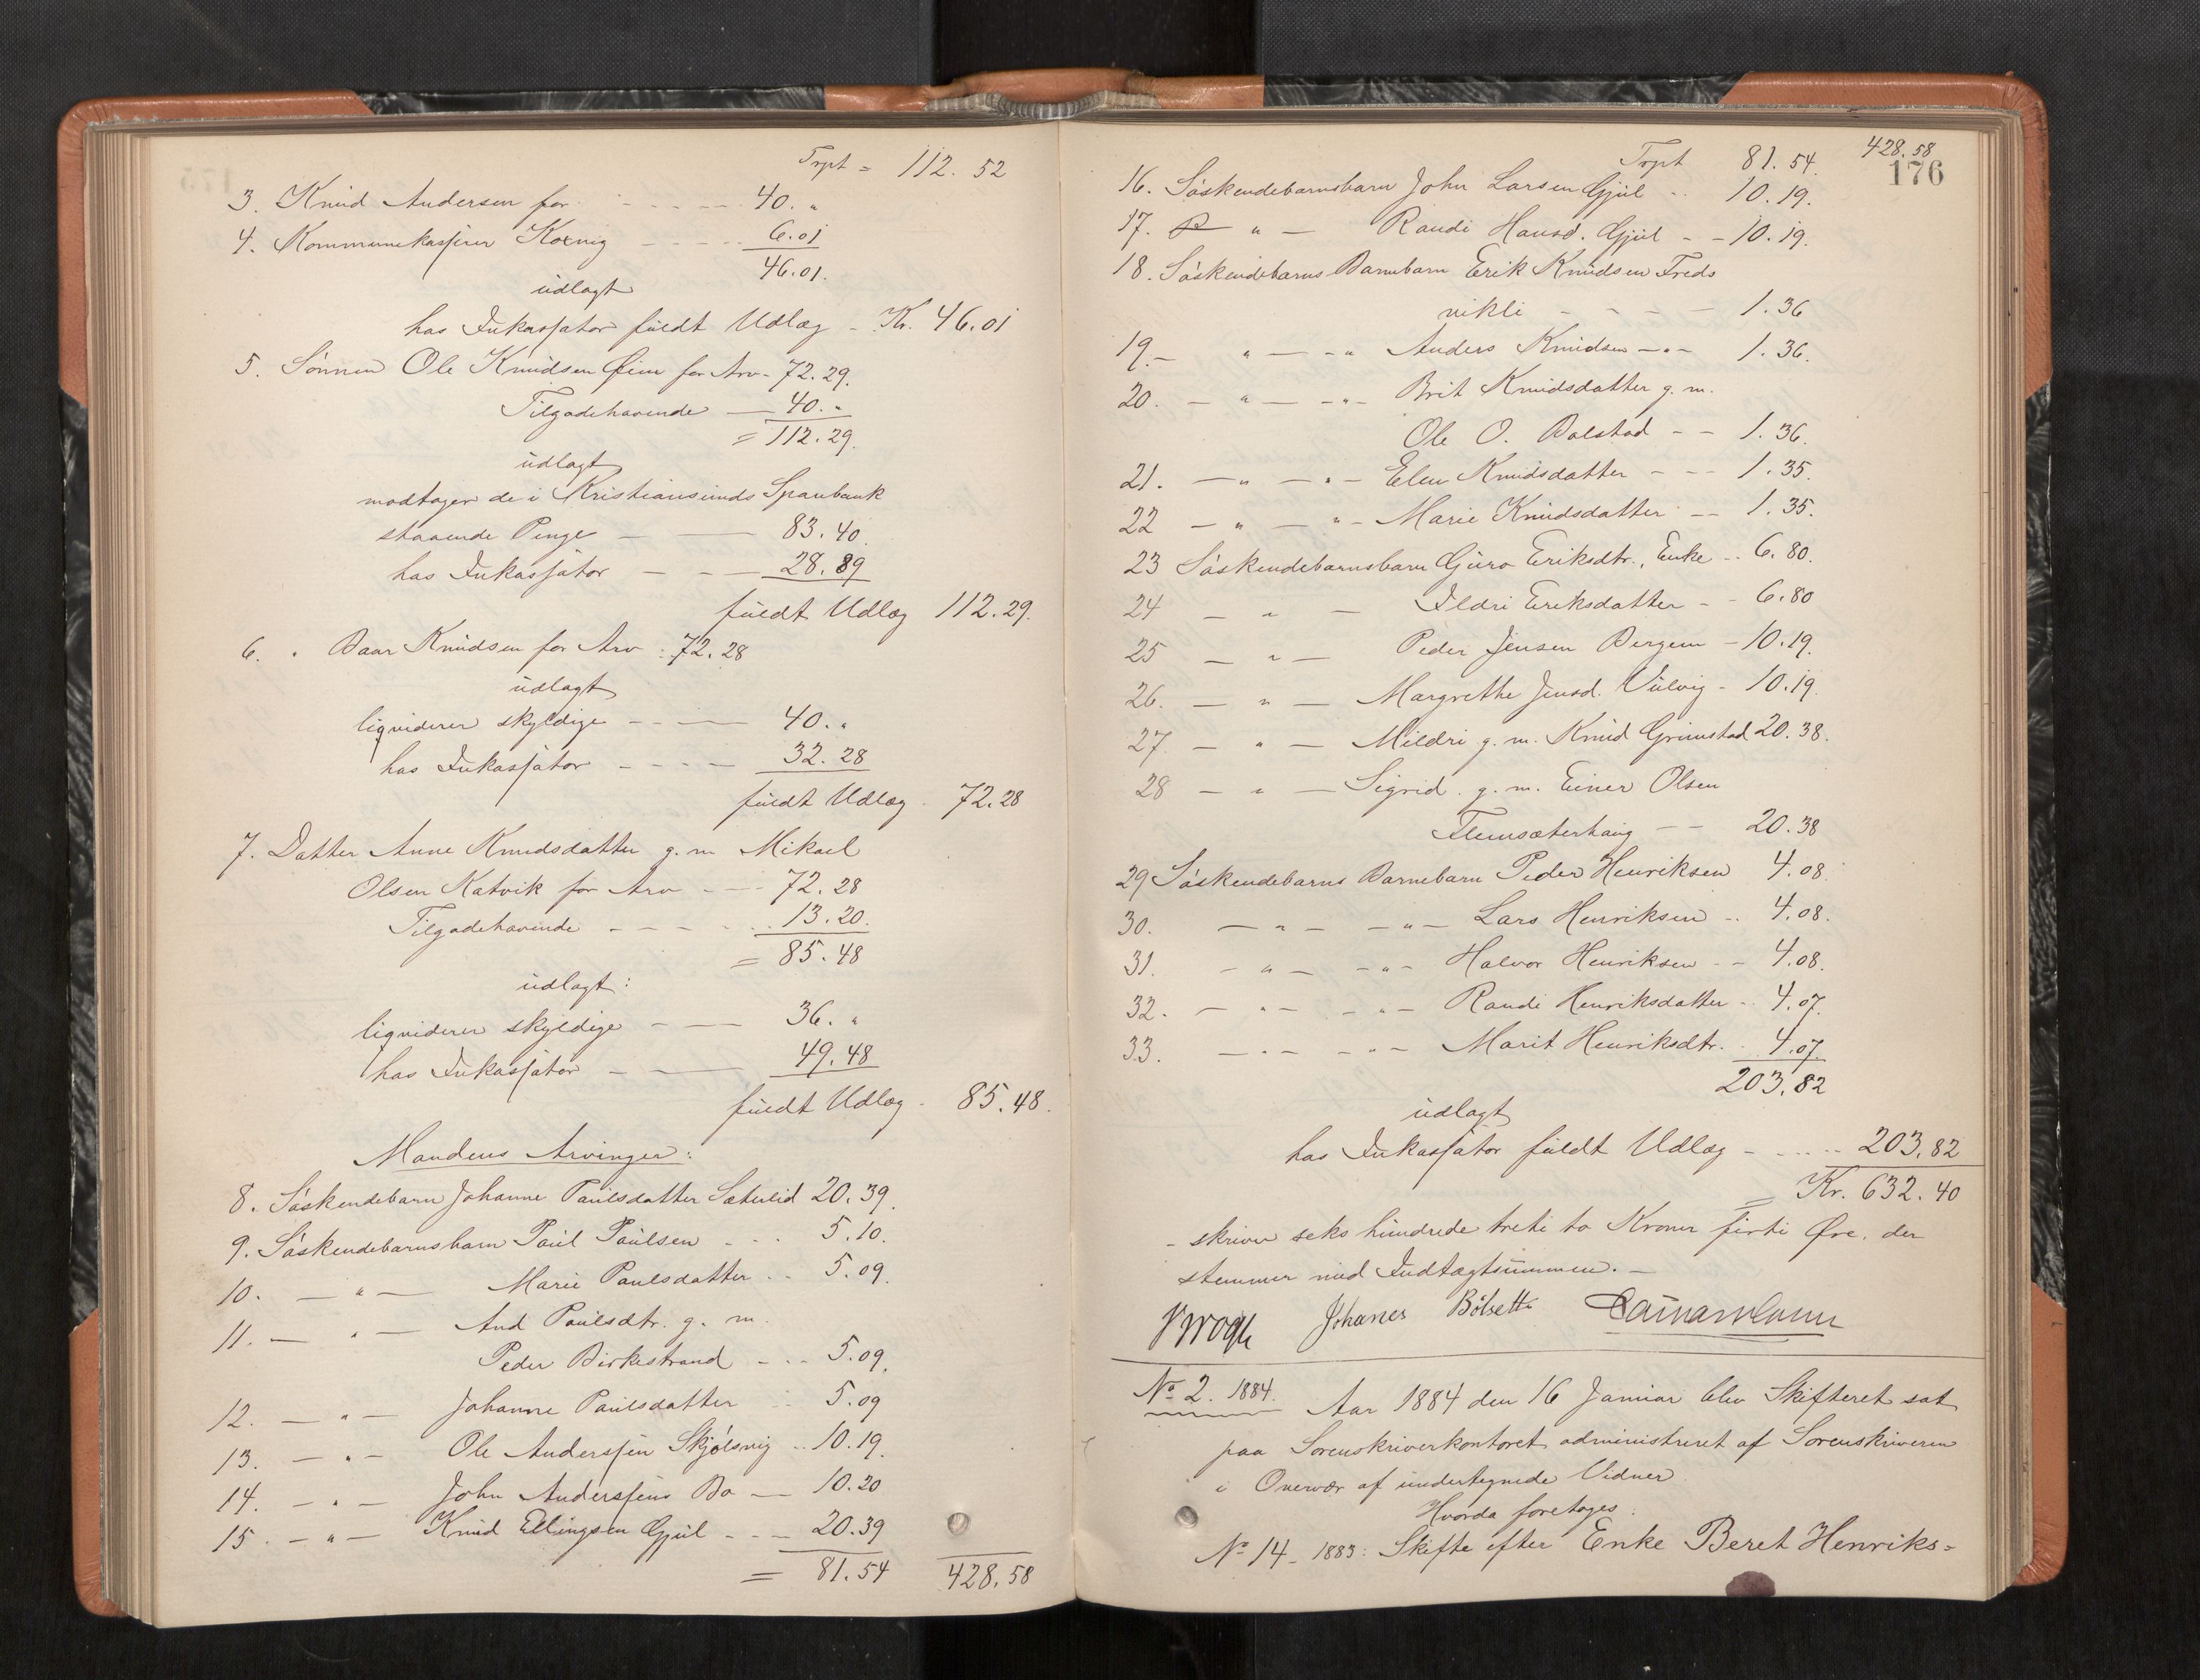 Trpt = 112. 52
3. Knud Andersen for - - - - 40. "
4. Kommunekasserer Koenig - - - - 6.01
46.01.
udlagt
hos Inkassator fuldt Udlæg - Kr. 46.01
5. Sønnen Ole Knudsen Øien for Arv - 72.29.
Tilgodehavende — 40. "
= 112.29.
udlagt
modtager de i Kristiansunds Sparebank
staaende Penge — — 83.40.
hos Inkassator — - — 28.89
fuldt Udlæg 112.29.
6. " Baar Knudsen for Arv : 72.28
udlagt
liqviderer skyldige - - — 40. "
hos Inkassator - - - — 32.28
fuldt Udlæg - 72.28
7. Datter Anne Knudsdatter g. m Mikael
Olsen Katvik for Arv - — 72.28
Tilgodehavende - - - - 13.20.
= 85.48
udlagt:
liqviderer skyldige - — 36. "
hos Inkassator - — 49.48
fuldt Udlæg - 85.48.
Mandens Arvinger:
8. Søskendebarn Johanne Paulsdatter Sæterlid 20.39.
9. Søskendebarnsbarn Paul Paulsen - - - 5.10.
10. — " — Marie Paulsdatter - - 5.09.
11. — " — And Paulsdtr. g. m.
Peder Birkestrand - - - 5.09.
12. — " — Johanne Paulsdatter - 5.09
13. — " — Ole Anderssen Skjølsvig - - 10.19.
14. — " — John Anderssens Bo — 10.20
15. — " — Knud Ellingsen Gjül - - — 20.39
= 81.54 428.58
428.58
176
Trpt 81.54.
16. Søskendebarnsbarn John Larsen Gjül - - 10.19.
17. " — Randi Hansd. Gjül - - 10.19.
18. Søskendebarns Barnebarn Erik Knudsen Freds
vikli - - - - 1.36
19. — " — - " Anders Knudsen — " - 1.36.
20. — " — - " - Brit Knudsdatter g. m.
Ole O. Bolstad - - 1.36.
21. — " — - " - Elen Knudsdatter - - - 1.35.
22 — " — " - Marie Knudsdatter - - 1.35.
23 Søskendebarnsbarn Guro Eriksdtr., Enke - - 6.80.
24 — " — Ildri Eriksdatter - - 6.80
25 — " — Peder Jensen Bergem - 10.19.
26. — " — Margrethe Jensd. Vulvig - 10.19.
27. — " — Mildri g. m. Knud Grimstad 20.38.
28 — " — Sigrid g. m. Einer Olsen
Flemsæterhaug - - 20.38
29 Søskendebarns Barnebarn Peder Henriksen 4.08.
30. — " — - " - Lars Henriksen - - 4.08.
31. — " — - " - Halvor Henriksen - - 4.08.
32. — " — - " - Randi Henriksdatter - - 4.07.
33. — " — - " - Marit Henriksdtr. - 4.07.
203.82
udlagt
hos Inkassator fuldt Udlæg - - - - 203.82
= Kr. 632.40
- skriver seks hundrede treti to Kroner firti Øre, der
stemmer med Indtægtsummen. -
Johanes Bölsett
No 2. 1884. Aar 1884 den 16 Januar blev Skifteret sat
paa Sorenskriverkontoret administreret af Sorenskriveren
i Overvær af undertegnede Vidner.
Hvorda foretoges:
No 14 - 1883: Skifte efter Enke Beret Henriks=